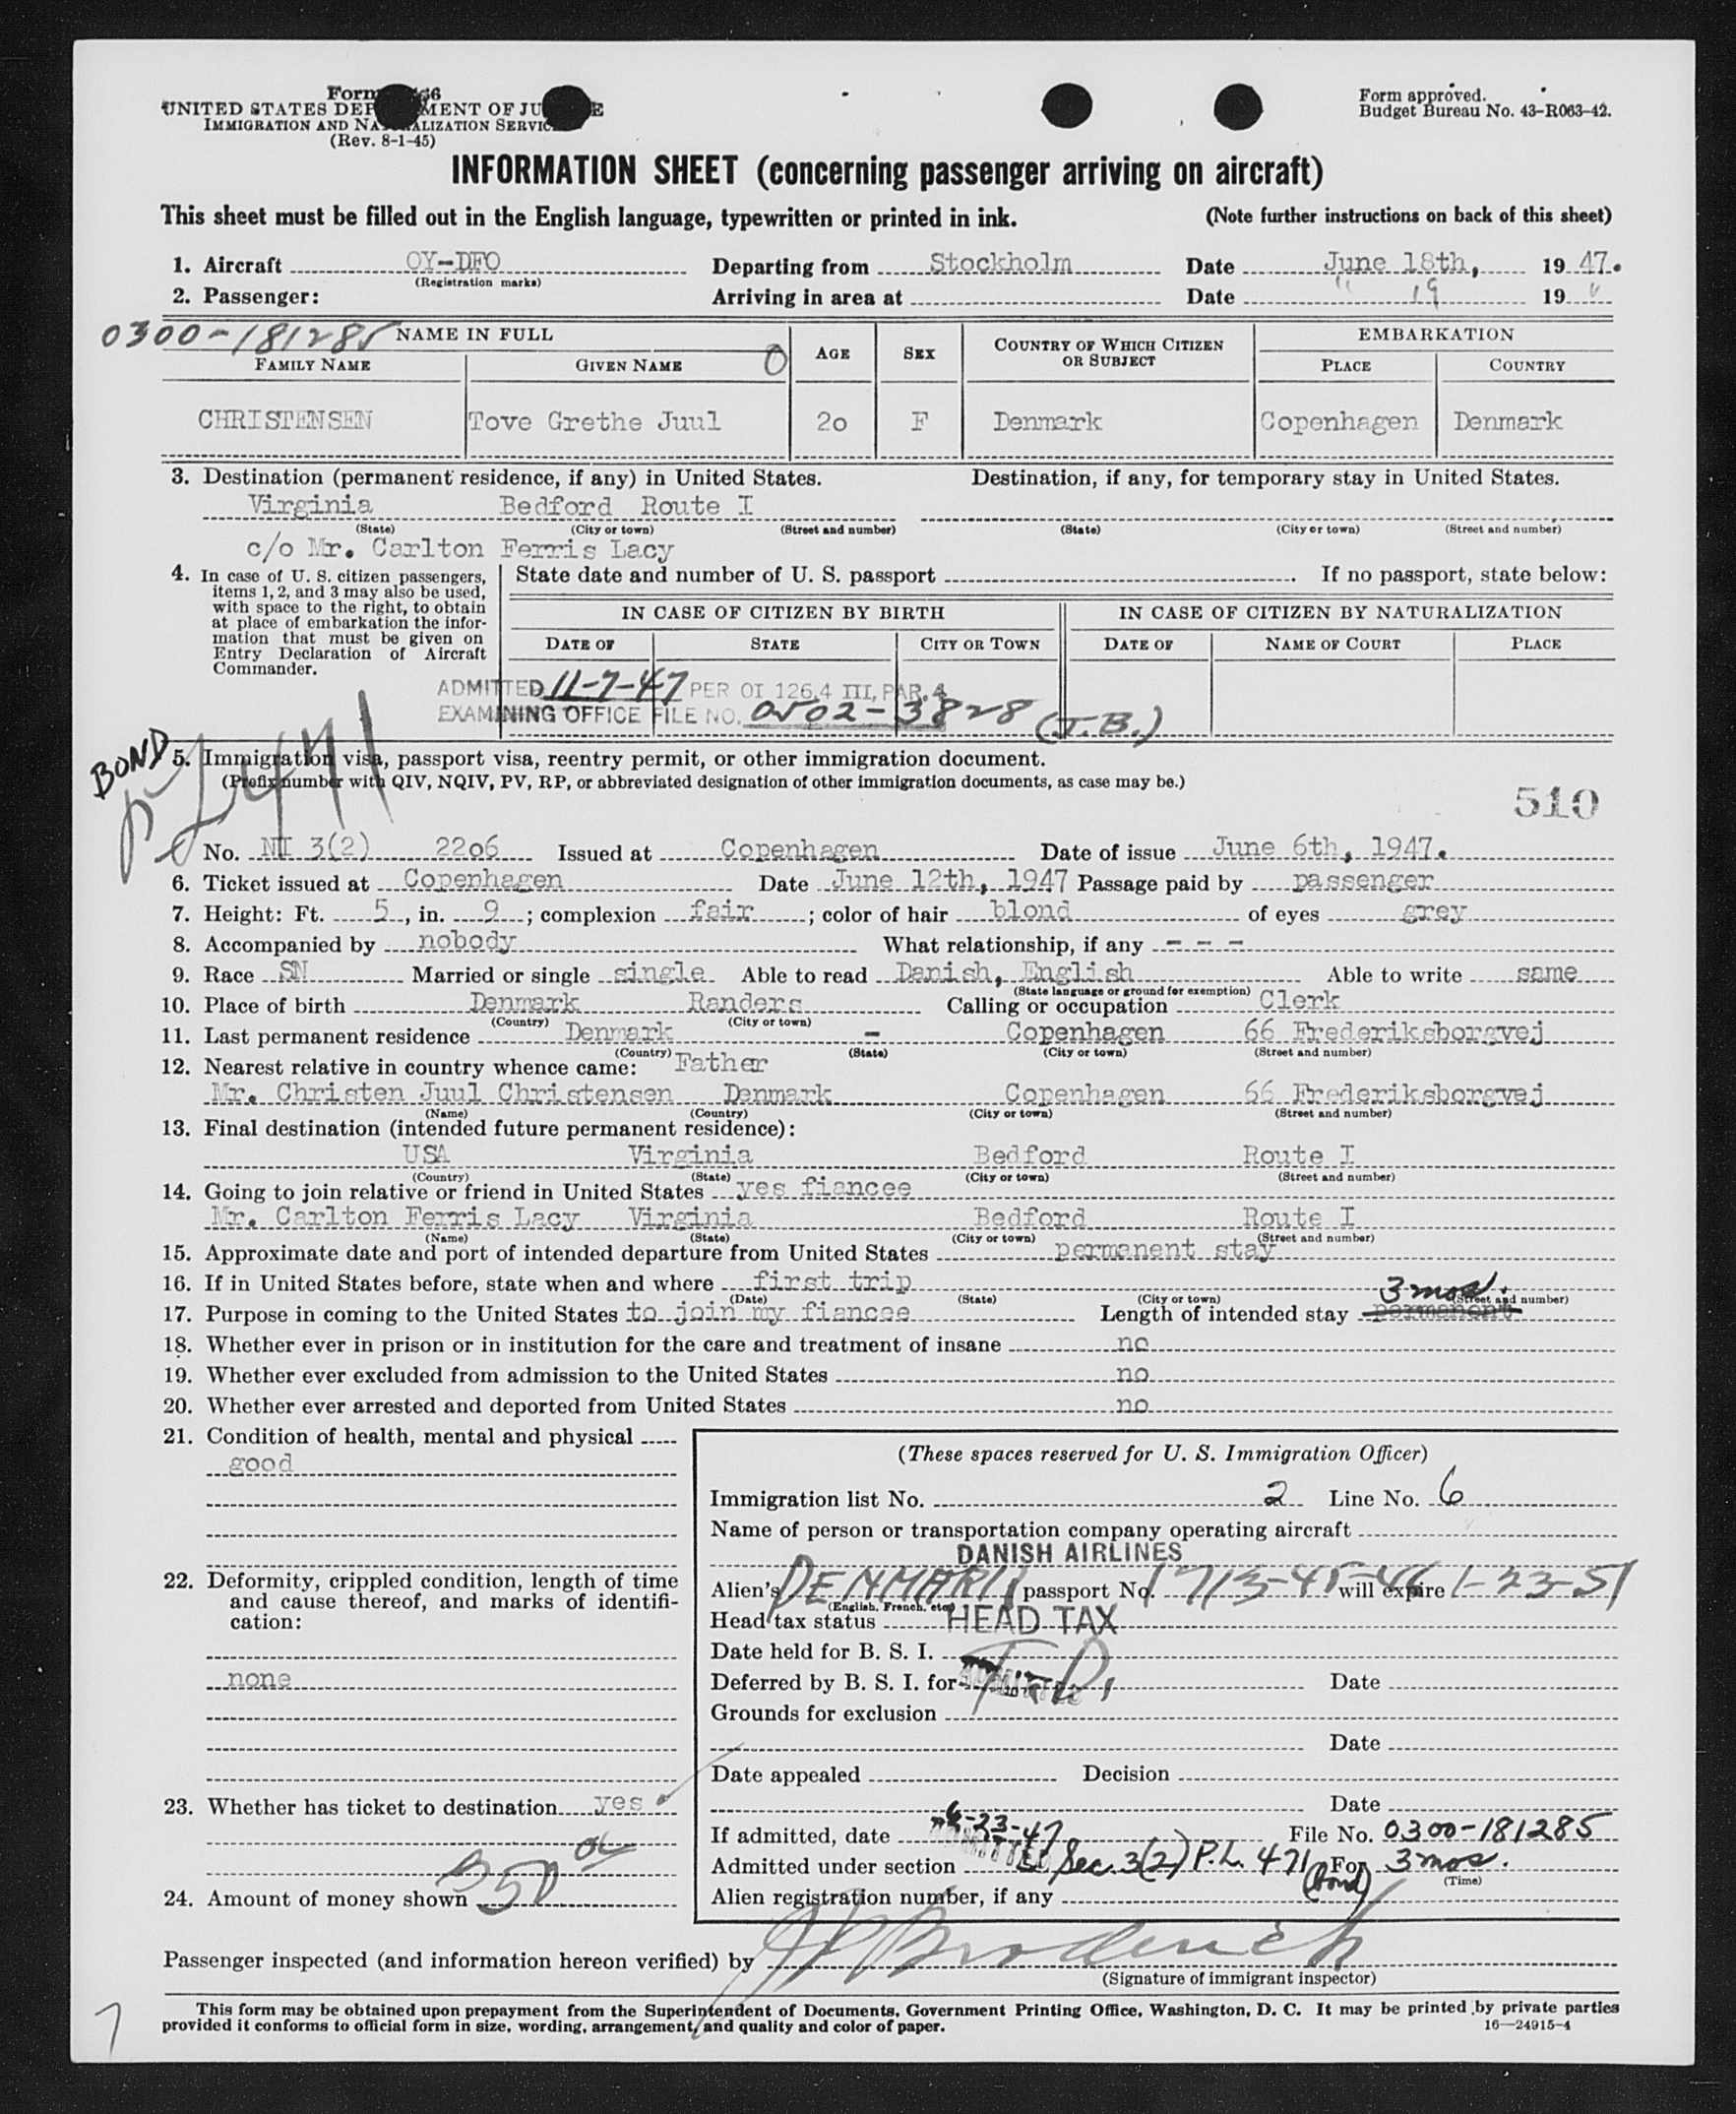 Form
UNITED STATES DEPARTMENT OF JUSTICE
IMMIGRATION AND NATURALIZATION SERVICE
(Rev. 8-1-45)
Form approved.
Budget Bureau No. 43-R063-42.
INFORMATION SHEET (concerning passenger arriving on aircraft)
This sheet must be filled out in the English language, typewritten or printed in ink. (Note further instructions on back of this sheet)
1. Aircraft OY-DFO Departing from Stockholm Date June 18th, 19 47.
(Registration marks)
2. Passenger: Arriving in area at Date " 19 19 "
0300-181285 NAME IN FULL AGE SEX COUNTRY OF WHICH CITIZEN OR SUBJECT EMBARKATION
FAMILY NAME GIVEN NAME 0 PLACE COUNTRY
CHRISTENSEN Tove Grethe Juul 2o F Denmark Copenhagen Denmark
3. Destination (permanent residence, if any) in United States. Destination, if any, for temporary stay in United States.
Virginia Bedford Route I
(State) (City or town) (Street and number) (State) (City or town) (Street and number)
c/o Mr. Carlton Ferris Lacy
4. In case of U. S. citizen passengers, items 1, 2, and 3 may also be used, with space to the right, to obtain at place of embarkation the information that must be given on Entry Declaration of Aircraft Commander.
State date and number of U. S. passport . If no passport, state below:
IN CASE OF CITIZEN BY BIRTH IN CASE OF CITIZEN BY NATURALIZATION
DATE OF STATE CITY OR TOWN DATE OF NAME OF COURT PLACE
ADMITTED 11-7-47 PER OI 126.4 III, PAR. 4
EXAMINING OFFICE FILE NO. 0502-3828 (J.B.)
BOND
PL 471
5. Immigration visa, passport visa, reentry permit, or other immigration document.
(Prefix number with QIV, NQIV, PV, RP, or abbreviated designation of other immigration documents, as case may be.)
510
No. NI 3(2) 22o6 Issued at Copenhagen Date of issue June 6th, 1947.
6. Ticket issued at Copenhagen Date June 12th, 1947 Passage paid by passenger
7. Height: Ft. 5, in. 9; complexion fair; color of hair blond of eyes grey
8. Accompanied by nobody What relationship, if any - - -
9. Race SN Married or single single Able to read Danish, English Able to write same
(State language or ground for exemption)
10. Place of birth Denmark Randers Calling or occupation Clerk
(Country) (City or town)
11. Last permanent residence Denmark - Copenhagen 66 Frederiksborgvej
(Country) (State) (City or town) (Street and number)
12. Nearest relative in country whence came: Father
Mr. Christen Juul Christensen Denmark Copenhagen 66 Frederiksborgvej
(Name) (Country) (City or town) (Street and number)
13. Final destination (intended future permanent residence):
USA Virginia Bedford Route I
(Country) (State) (City or town) (Street and number)
14. Going to join relative or friend in United States yes fiancee
Mr. Carlton Ferris Lacy Virginia Bedford Route I
(Name) (State) (City or town) (Street and number)
15. Approximate date and port of intended departure from United States permanent stay
16. If in United States before, state when and where first trip
(Date) (State) (City or town) (Street and number)
3 mos.
17. Purpose in coming to the United States to join my fiancee Length of intended stay permanent
18. Whether ever in prison or in institution for the care and treatment of insane no
19. Whether ever excluded from admission to the United States no
20. Whether ever arrested and deported from United States no
21. Condition of health, mental and physical
good
22. Deformity, crippled condition, length of time and cause thereof, and marks of identification:
none
23. Whether has ticket to destination yes
24. Amount of money shown
(These spaces reserved for U. S. Immigration Officer)
Immigration list No. 2 Line No. 6
Name of person or transportation company operating aircraft
DANISH AIRLINES
Alien's DENMARK passport No. 1713-45-46 will expire 1-23-51
(English, French, etc.)
Head tax status HEAD TAX
Date held for B. S. I.
Deferred by B. S. I. for Date
Grounds for exclusion
Date
Date appealed Decision
Date
If admitted, date 6-23-47 File No. 0300-181285
Admitted under section Sec. 3(2) P.L. 471 (Bond) For 3 mos.
(Time)
Alien registration number, if any
Passenger inspected (and information hereon verified) by
(Signature of immigrant inspector)
This form may be obtained upon prepayment from the Superintendent of Documents, Government Printing Office, Washington, D. C. It may be printed by private parties
provided it conforms to official form in size, wording, arrangement, and quality and color of paper. 16—24915-4
7